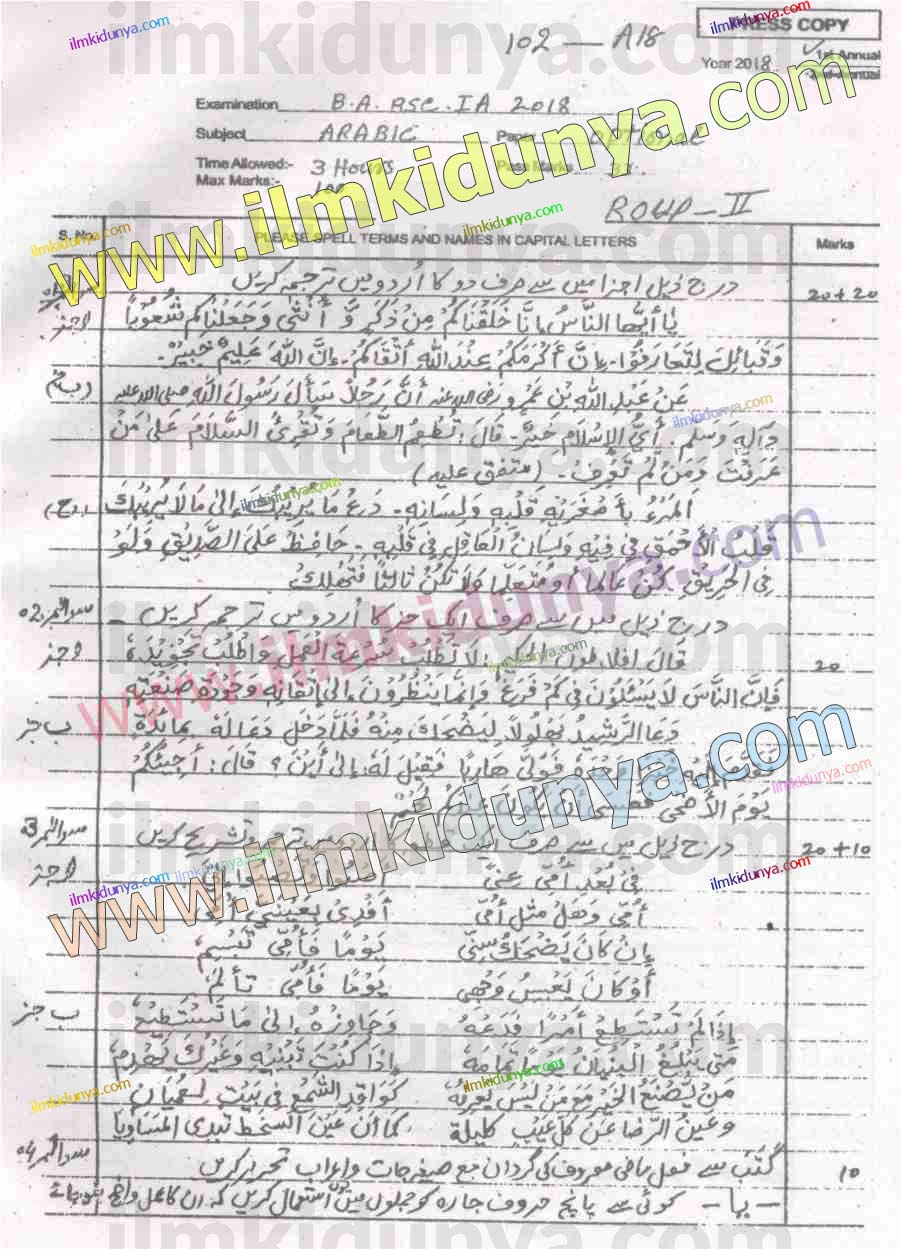 PRESS COPY
102 — A18
Year 2018 1st Annual
2nd Annual
Examination B.A. ASC. IA 2018
Subject ARABIC Paper OPTIONAL
Time Allowed:- 3 Hours Pass Marks 33.
Max Marks:- 100
ROUP - II
S. No PLEASE SPELL TERMS AND NAMES IN CAPITAL LETTERS Marks
درج ذیل اجزا میں سے صرف دو کا اُردو میں ترجمہ کریں 20+20
جز یٰا أیُّها النَّاسُ إنَّا خَلَقْنَاكُم مِنْ ذَكَرٍ وَّ أُنْثٰى وَجَعَلْنَاكُم شُعُوْبًا
وَقَبَائِلَ لِتَعَارَفُوْا۔ إنَّ أكْرَمَكُمْ عِنْدَ اللهِ أتْقَاكُمْ۔ إنَّ اللهَ عَلِيْمٌ خَبِيْرٌ۔
(ب) عَنْ عَبْدِ اللهِ بْنِ عَمْرٍو رضی اللہ عنہ أنَّ رَجُلًا سَألَ رَسُوْلَ اللهِ صلی اللہ علیہ
وَآلِهٖ وَسَلَّم۔ أيُّ الإسْلَامِ خَيْرٌ۔ قَالَ: تُطْعِمُ الطَّعَامَ وَتَقْرِئُ السَّلَامَ عَلٰى مَنْ
عَرَفْتَ وَمَنْ لَمْ تَعْرِفْ۔ (متفق علیہ)
(ج) اَلْمَرْءُ بِأصْغَرَيْهِ قَلْبِهٖ وَلِسَانِهٖ۔ دَعْ مَا يُرِيْبُكَ إلىٰ مَا لَا يُرِيْبُكَ
قَلْبُ الأحْمَقِ فِي فِيْهِ وَلِسَانُ الْعَاقِلِ فِي قَلْبِهٖ۔ حَافِظْ عَلَى الصَّدِيْقِ وَلَوْ
فِي الْحَرِيْقِ۔ كُنْ عَالِمًا أو مُتَعَلِّمًا وَلَا تَكُنْ ثَالِثًا فَتَهْلِكَ
سوال نمبر 02 درج ذیل میں سے صرف ایک جز کا اُردو میں ترجمہ کریں ۔
جز قَالَ افلاطون : لَا تَطْلُبْ سُرْعَةَ الْعَمَلِ وَاطْلُبْ تَجْوِيْدَهٗ 20
فَإنَّ النَّاسَ لَا يَسْئَلُوْنَ فِي كَمْ فَرَغَ وَإنَّمَا يَنْظُرُوْنَ إلىٰ إتْقَانِهٖ وَجَوْدَةِ صَنْعَتِهٖ
ب جز دَعَا الرَّشِيْدُ بُهْلُوْلًا لِيَضْحَكَ مِنْهُ فَلَمَّا دَخَلَ دَعَا لَهٗ بِمَائِدَةٍ
فَوَلّٰى هَارِبًا فَقِيْلَ لَهٗ: إلىٰ أيْنَ؟ قَالَ: أجِيْئُكُمْ
يَوْمَ الأضْحٰى
سوال نمبر 03 درج ذیل میں سے صرف ایک 20+10
جز فِي بُعْدِ أُمِّي عَنِّي
أُمِّي وَهَلْ مِثْلُ أُمِّي أفْدِي بِعَيْنِيْ
إنْ كَانَ يَضْحَكُ سِنِّي يَوْمًا فَأُمِّي تَبْسِمُ
أوْ كَانَ يَعْبِسُ وَجْهِي يَوْمًا فَأُمِّي تَألَمُ
ب جز إذَا لَمْ تَسْتَطِعْ أمْرًا فَدَعْهُ وَجَاوِزْهُ إلىٰ مَا تَسْتَطِيْعُ
مَتٰى يَبْلُغُ الْبُنْيَانُ يَوْمًا تَمَامَهٗ إذَا كُنْتَ تَبْنِيْهِ وَغَيْرُكَ يَهْدِمُ
مَنْ يَصْنَعُ الْخَيْرَ مَعَ مَنْ لَيْسَ يَعْرِفُهٗ كَوَاقِدِ الشَّمْعِ فِي بَيْتٍ لِعُمْيَانٍ
وَعَيْنُ الرِّضَا عَنْ كُلِّ عَيْبٍ كَلِيْلَةٌ كَمَا أنَّ عَيْنَ السُّخْطِ تُبْدِي الْمَسَاوِيَا
سوال نمبر 04 كَتَبَ سے فعل ماضی معروف کی گردان مع صیغہ جات و اعراب تحریر کریں 10
— یا — کوئی سے پانچ حروف جارہ کو جملوں میں استعمال کریں کہ ان کا عمل واضح ہو جائے
www.ilmkidunya.com
www.ilmkidunya.com
www.ilmkidunya.com
ilmkidunya.com